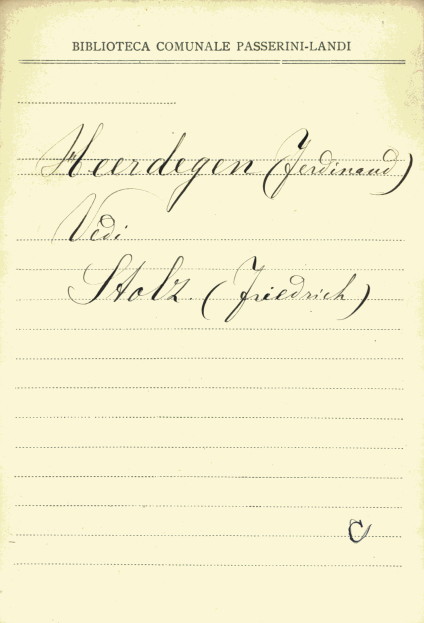 BIBLIOTECA COMUNALE PASSERINI-LANDI
Heerdegen (Ferdinand)
Vedi
Stolz. (Friedrich)
C